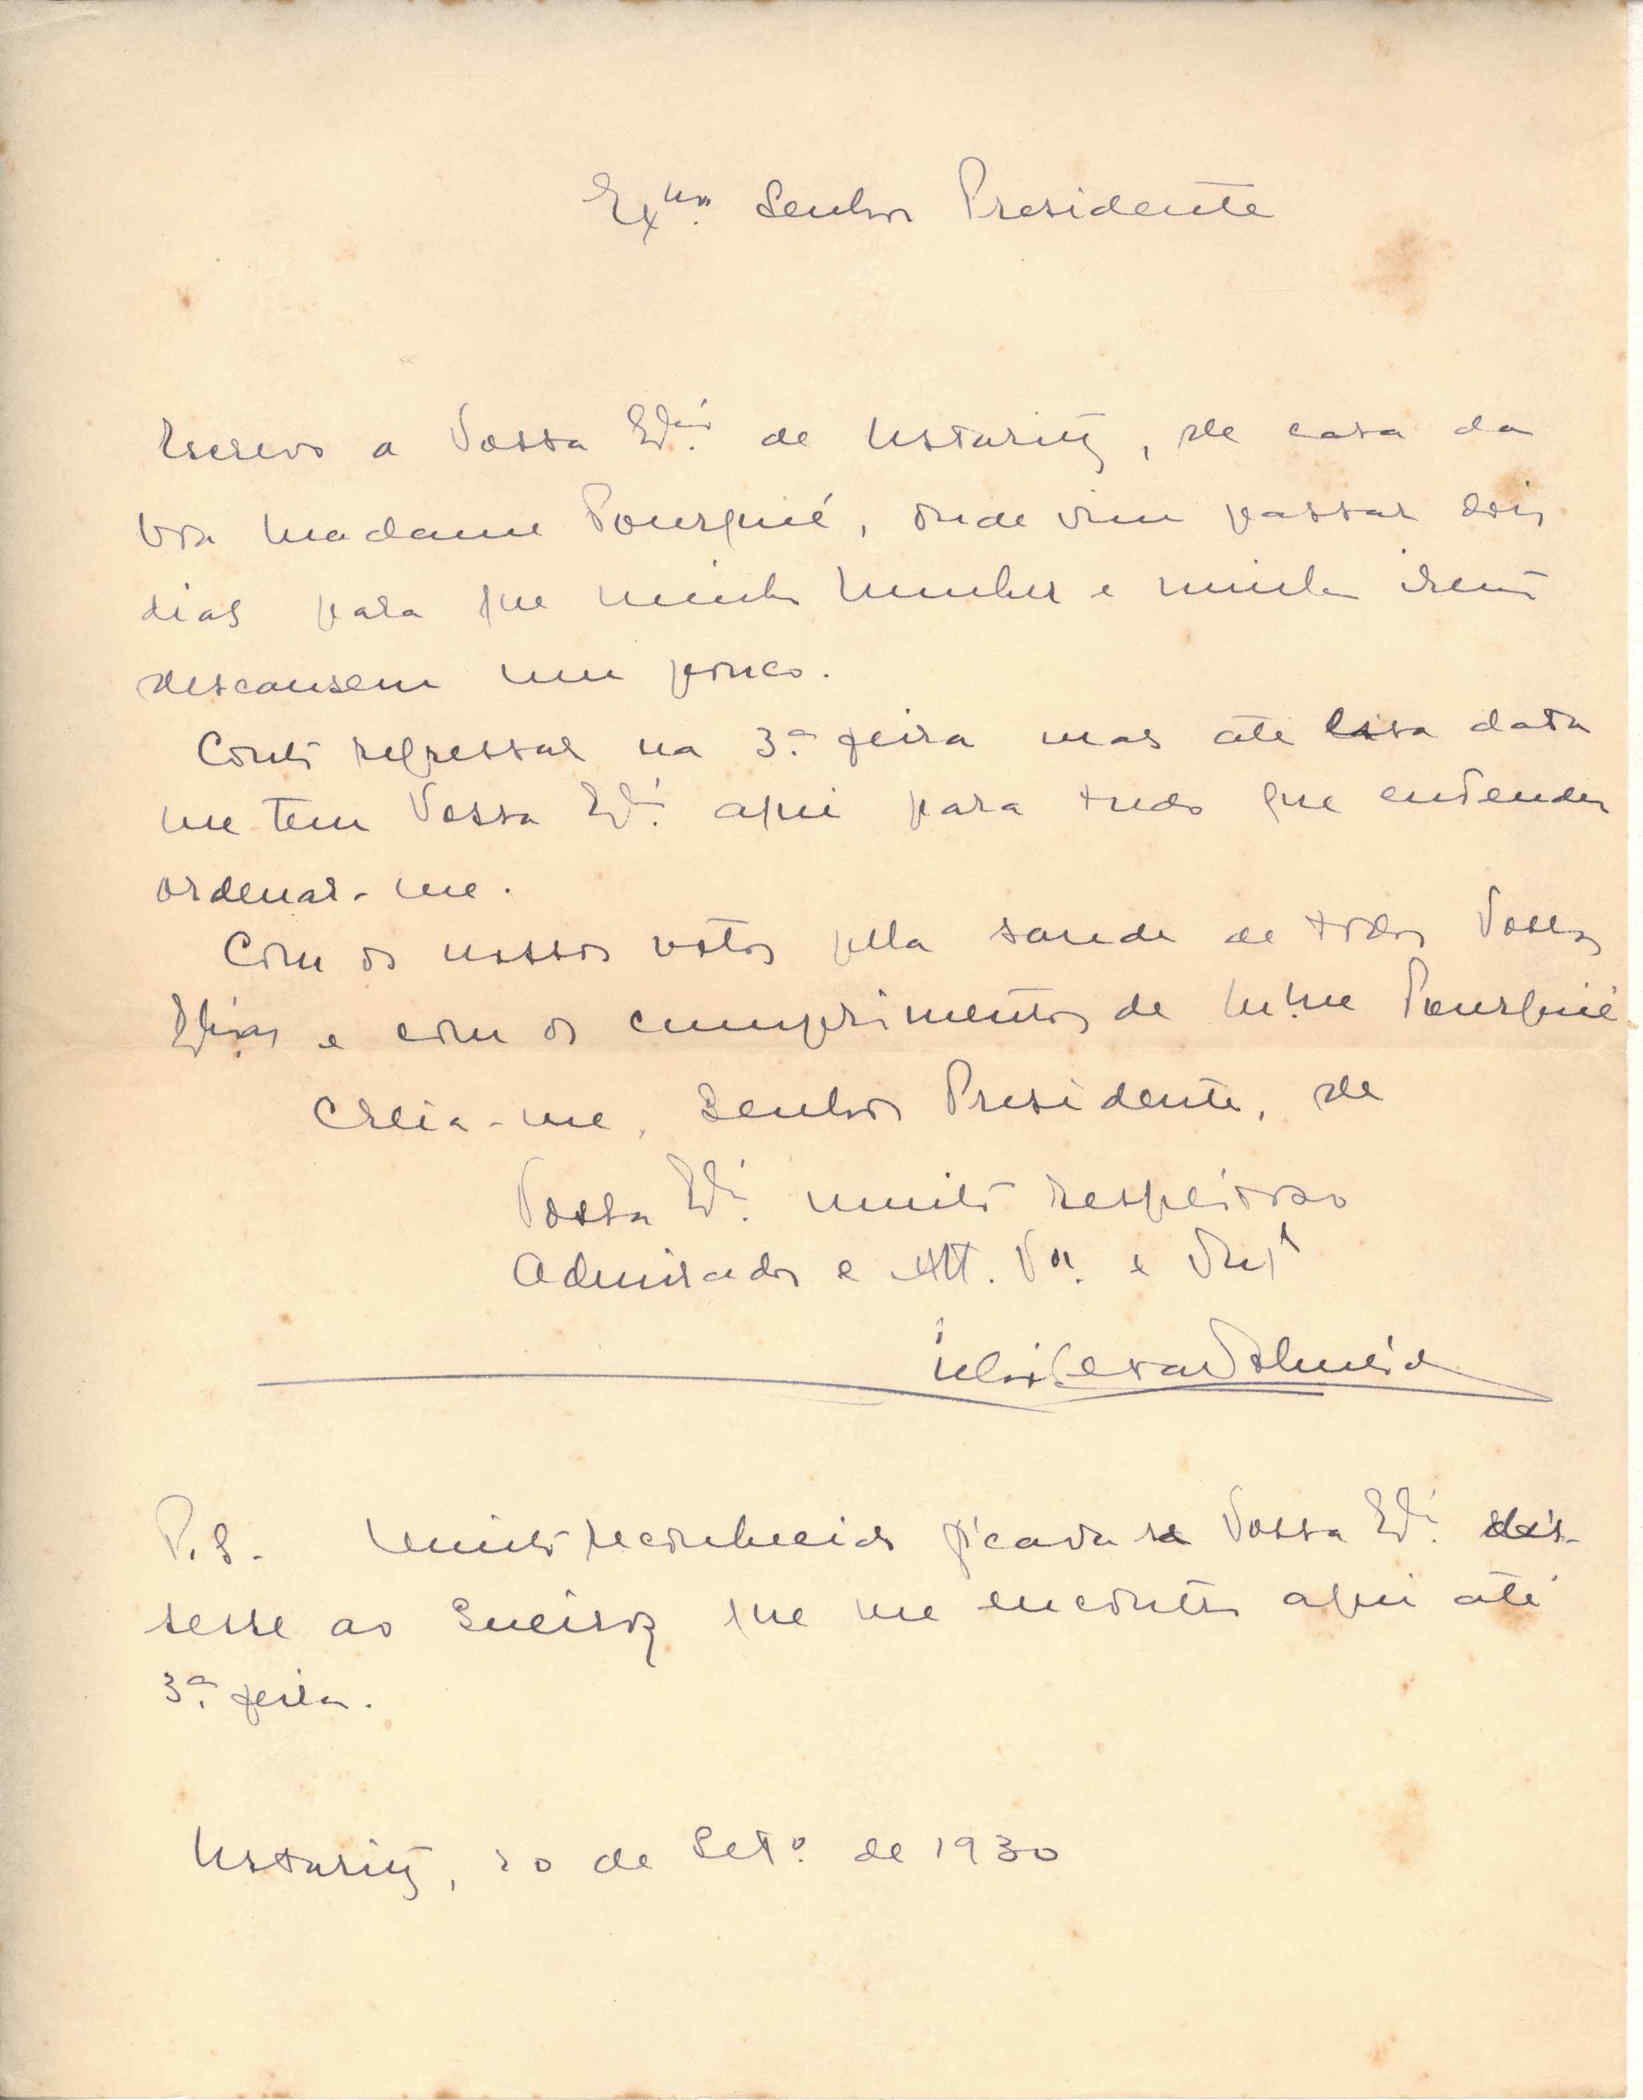 Exmo. Senhor Presidente
Escrevo a Vossa Excia. de Ustaritz, de casa da
boa Madame Pourquié, onde vim passar dois
dias para que minha mulher e minha irmã
descansem um pouco.
Conto regressar na 3.ª feira mas até essa data
me tem Vossa Excia. aqui para tudo que entender
ordenar-me.
Com os nossos votos pela saude de todos Vossas
Excias. e com os cumprimentos de Mme Pourquié
Creia-me, Senhor Presidente, de
Vossa Excia. muito respeitoso
Admirador e Att. Vor. e
Julio Cesar d'Almeida
P.S. Muito reconhecido ficava se Vossa Excia. dis-
sesse ao Queiroz que me encontro aqui até
3.ª feira.
Ustaritz, 20 de Set.º de 1930